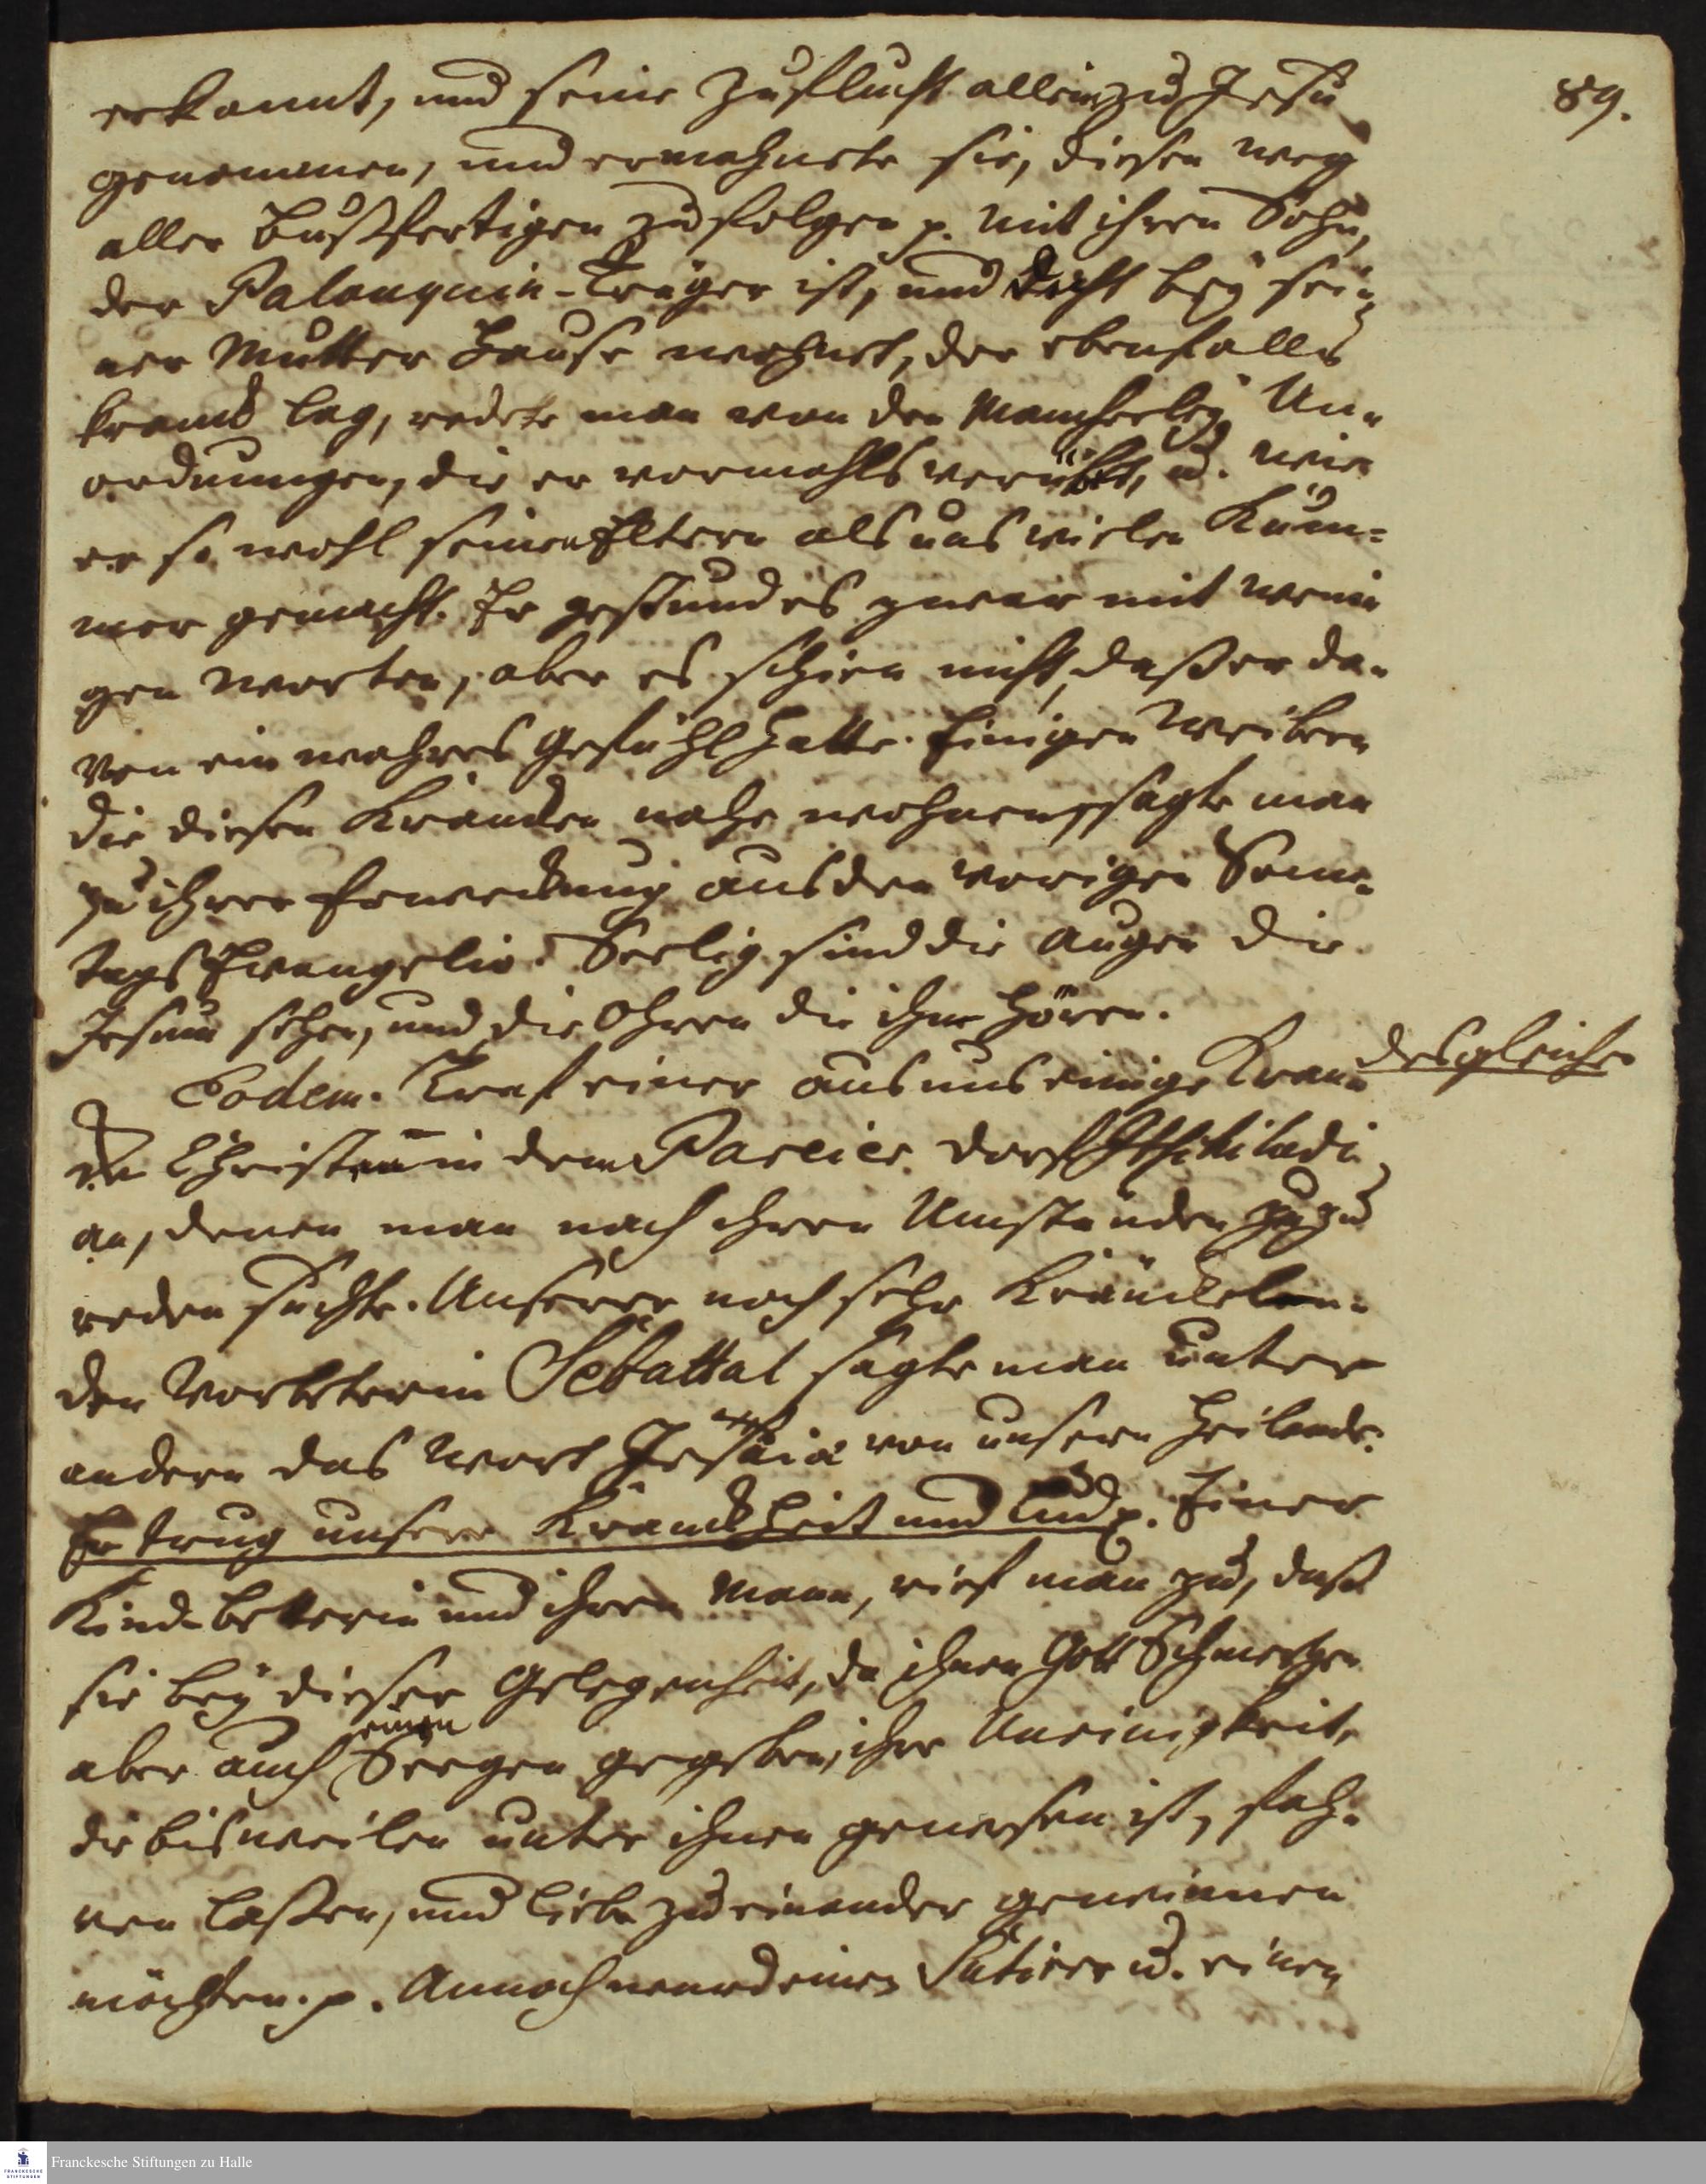 89.
erkannt, und seine Zuflucht allein zu Jesu
genommen, und ermahnete sie, diesen weg
aller Bußfertigen zu folgen p. Mit ihren Sohn,
der Palanquin-Träger ist, und dicht bey sei-
ner Mutter Hause wohnet, der ebenfalls
kranck lag, redete man von den Mancherley Un-
ordnungen, die er vormahls verübt, u. wie
er so wohl seinen Eltern als uns vielen Kum-
mer gemacht. Er gestund es zwar mit weni
gen Worten, aber es schien nicht, daß er da-
von ein wahres Gefühl hatte. Einigen Weibern
die diesen Krancken nahe wohnen, sagte man
zu ihrer Erweckung aus den vorigen Sonn-
tags Evangelio: Seelig sind die Augen die
Jesum sehen, und die Ohren die ihn hören.
desgleichen
Eodem. Traf einer aus uns einige Kran
cke Christen in dem Pareier dorf
an, denen man nach ihren Umständen zuzu
reden suchte. Unserer noch sehr Kränckeln-
den Vorbeterin Sebattal sagte man unter
andern das Wort Jesaiä von unsern Heilande:
Er trug unsere Kranckheit und lud p. Einer
Kindbetterin und ihren Mann, rief man zu, daß
sie bey dieser Gelegenheit, da ihnen Gott Schmertzen
aber auch einen Seegen gegeben, ihre Uneinigkeit,
die bisweilen unter ihnen gewesen ist, fah-
ren laßen, und Liebe zu einander gewinnen
möchten. p. Annoch ward einen Sutirer u. einen
Franckesche Stiftungen zu Halle